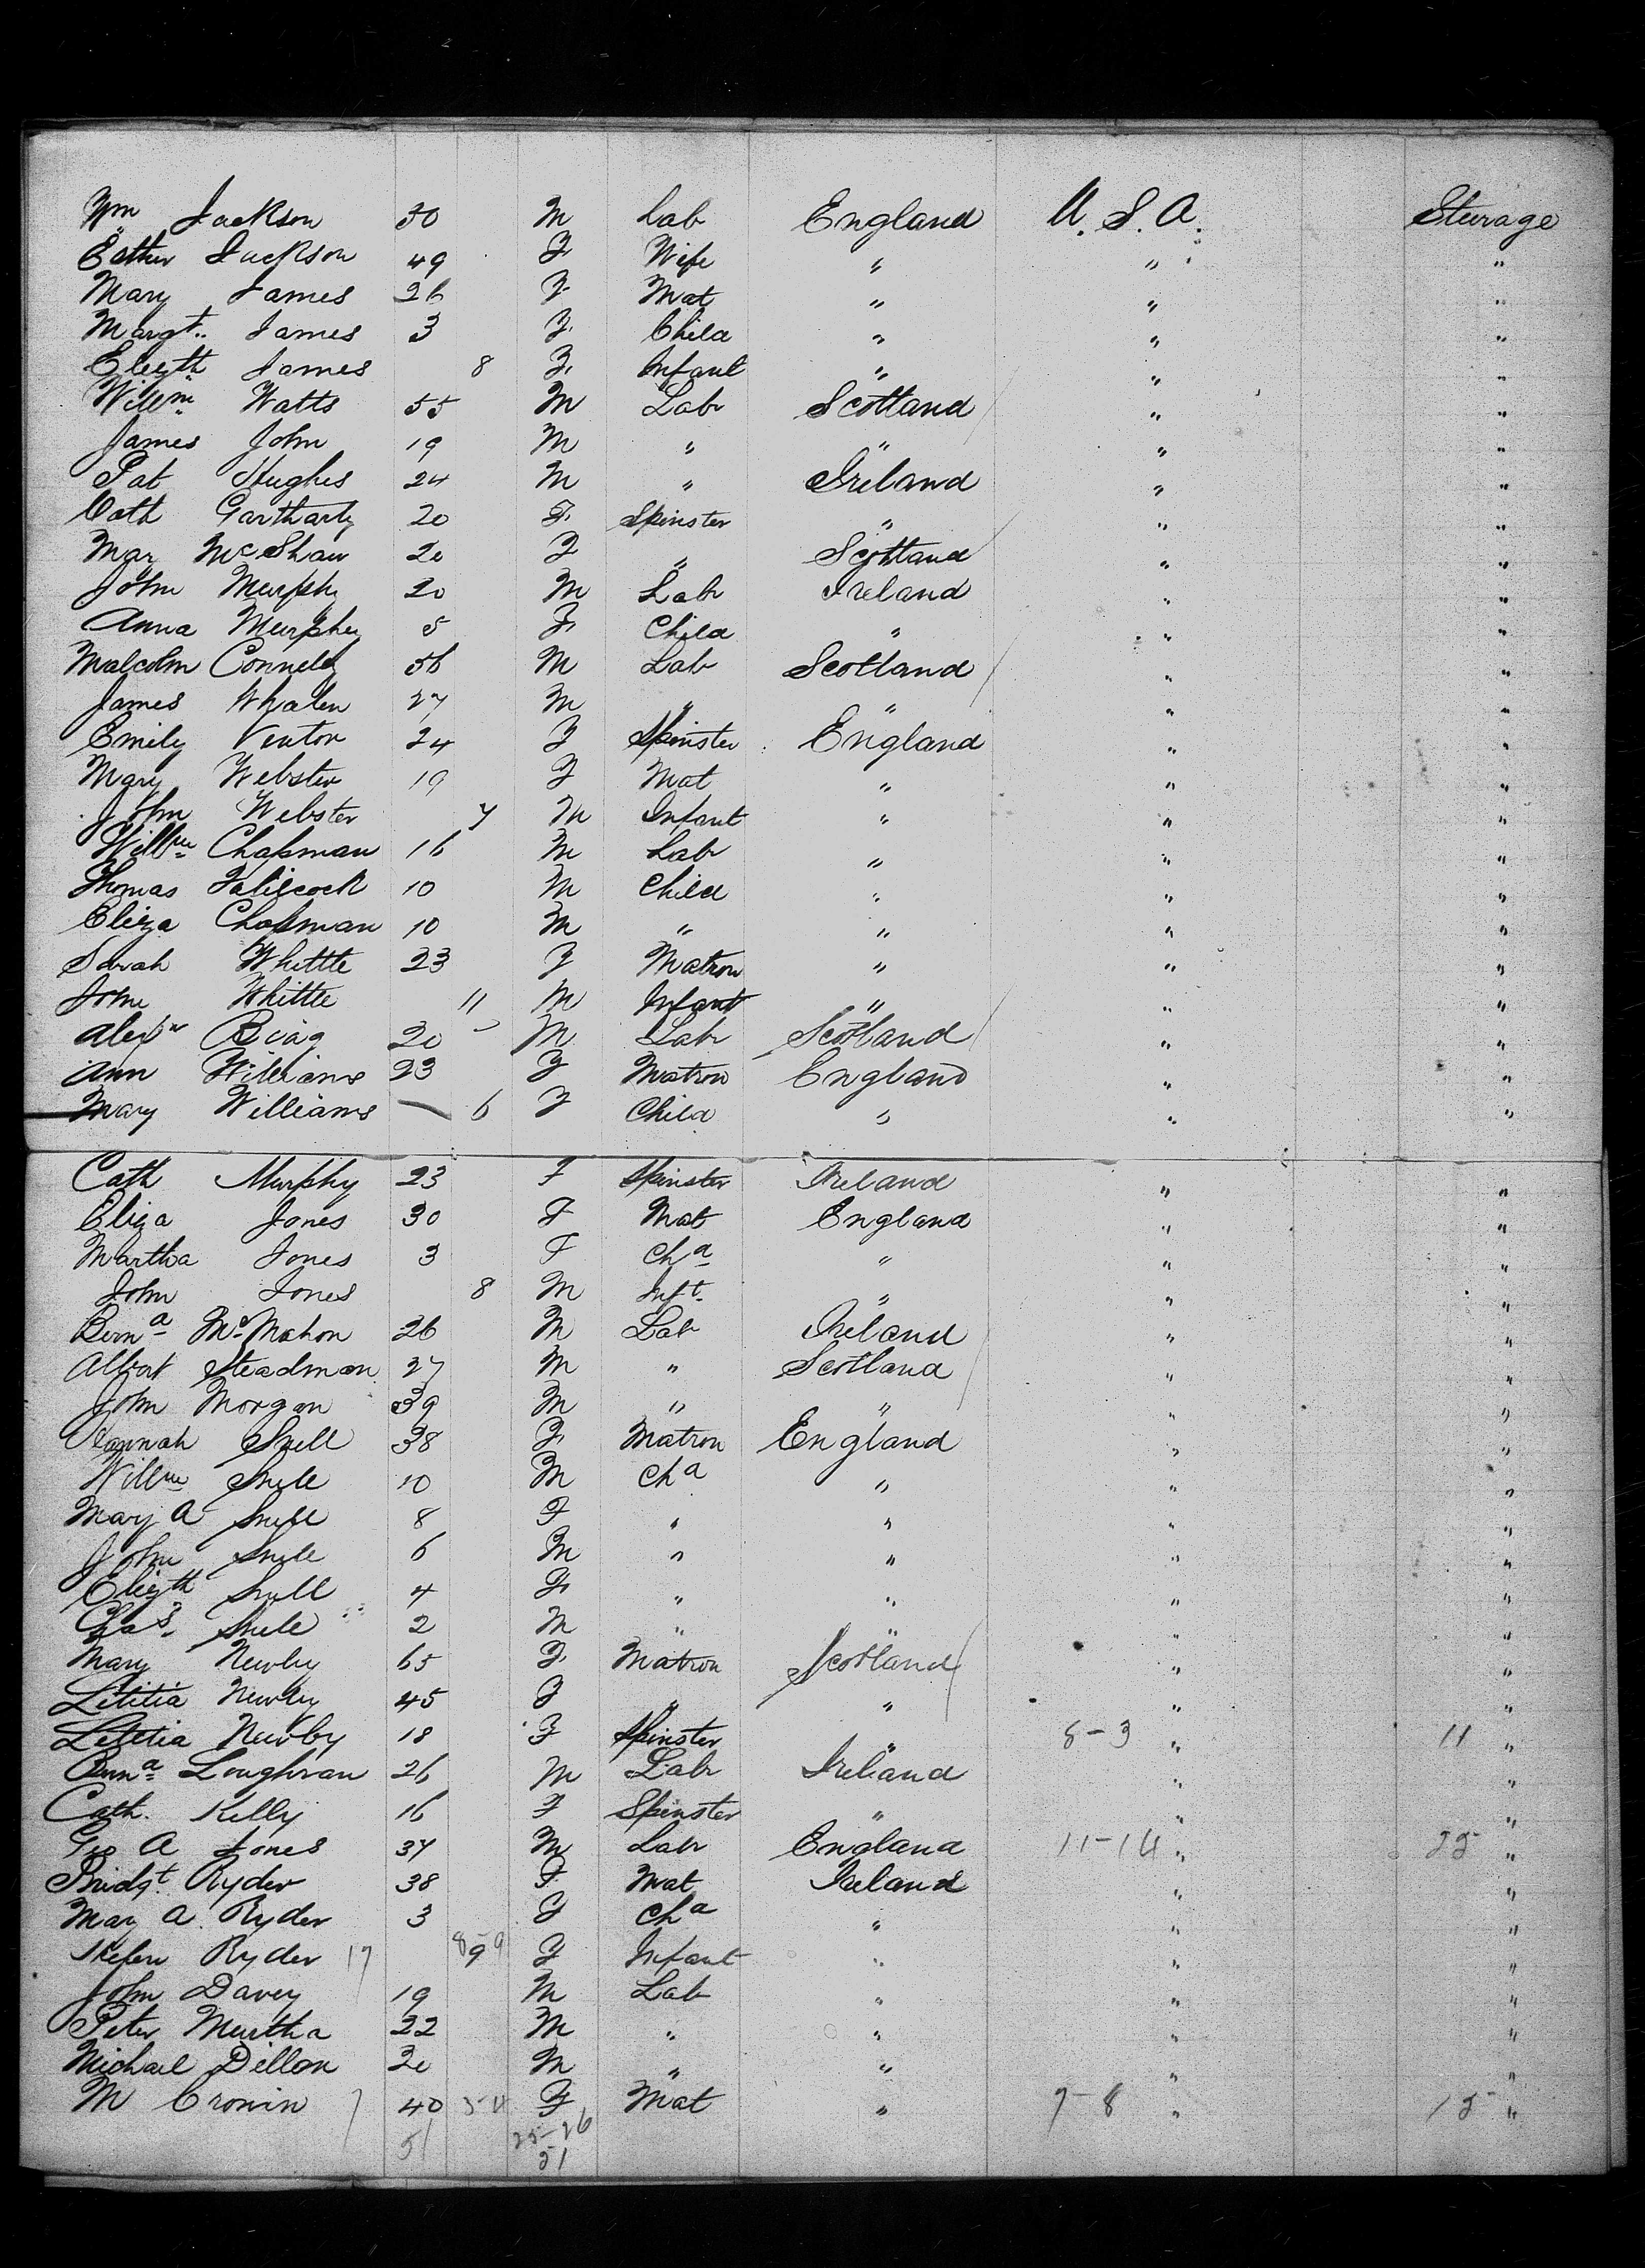 Wm Jackson 50 M Lab England U.S.A. Steerage
Esther Jackson 49 F Wife " " "
Mary James 26 F Mat " " "
Margt. James 3 F Child " " "
Elizth James 8 F Infant " " "
Willm Watts 55 M Labr Scotland " "
James John 19 M " " " "
Pat Hughes 24 M " Ireland " "
Cath 20 F Spinster " " "
Mar McShaw 20 F " Scotland " "
John Murphy 20 M Labr Ireland " "
Anna Murphy 5 F Child " " "
Malcolm Connelly 56 M Lab Scotland " "
James Whalen 27 M " " " "
Emily Venton 24 F Spinster England " "
Mary Webster 19 F Mat " " "
John Webster 7 M Infant " " "
Willm Chapman 16 M Labr " " "
Thomas 10 M Child " " "
Eliza Chapman 10 M " " " "
Sarah Whittle 23 F Matron " " "
John Whittle 11 M Infant " " "
Alexr 20 M Labr Scotland " "
Ann Williams 23 F Matron England " "
Mary Williams — 6 F Child " " "
Cath Murphy 23 F Spinster Ireland " "
Eliza Jones 30 F Mat England " "
Martha Jones 3 F Cha " " "
John Jones 8 M Inft. " " "
Berna McMahon 26 M Lab Ireland " "
Albert Steadman 27 M " Scotland " "
John Morgan 39 M " " " "
Hannah Snell 38 F Matron England " "
Willm Snell 10 M Cha " " "
Mary A Snell 8 F " " " "
John Snell 6 M " " " "
Elizth Snell 4 F " " " "
Chas. Snell 2 M " " " "
Mary Newby 65 F Matron Scotland " "
Letitia Newby 45 F " " " "
Letetia Newby 18 F Spinster " 8-3 " 11 "
Berna Loughran 26 M Labr Ireland " "
Cath. Kelly 16 F Spinster " " "
Geo A Jones 37 M Labr England 11-14 " 25 "
Bridgt. Ryder 38 F Mat Ireland " "
Mary A. Ryder 3 F Cha " " "
Ryder 17 8-9 9 F Infant " " "
John Davey 19 M Lab " " "
Peter Murtha 22 M " " " "
Michael Dillon 20 M " " " "
M Cronin 40 F Mat " 7-8 " 15 "
51 25-26
51